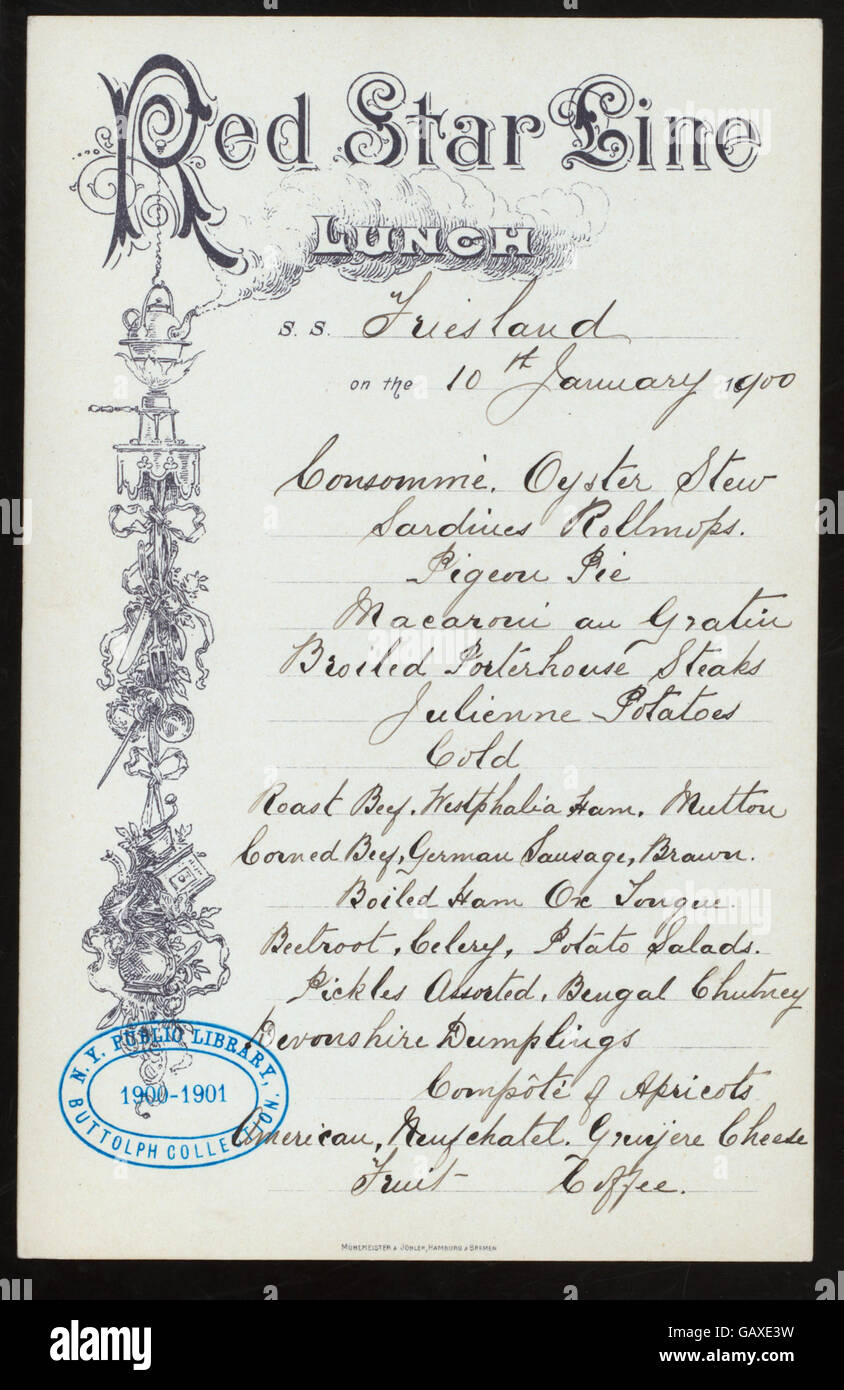 Red Star Line
LUNCH
S. S. Friesland
on the 10th January 1900
Consommé. Oyster Stew
Sardines Rollmops.
Pigeon Pie
Macaroni au Gratin
Broiled Porterhouse Steaks
Julienne Potatoes
Cold
Roast Beef. Westphalia Ham. Mutton
Corned Beef, German Sausage, Brawn.
Boiled Ham Ox Tongue.
Beetroot, Celery, Potato Salads.
Pickles Assorted, Bengal Chutney
Devonshire Dumplings
Compôté of Apricots
American, Neufchatel. Gruyere Cheese
Fruit Coffee.
N. Y. PUBLIC LIBRARY,
1900-1901
BUTTOLPH COLLECTION.
MÜHLMEISTER & JOHLER, HAMBURG & BREMEN
alamy
alamy
alamy
a
a
a
a
a
alamy
Image ID: GAXE3W
www.alamy.com